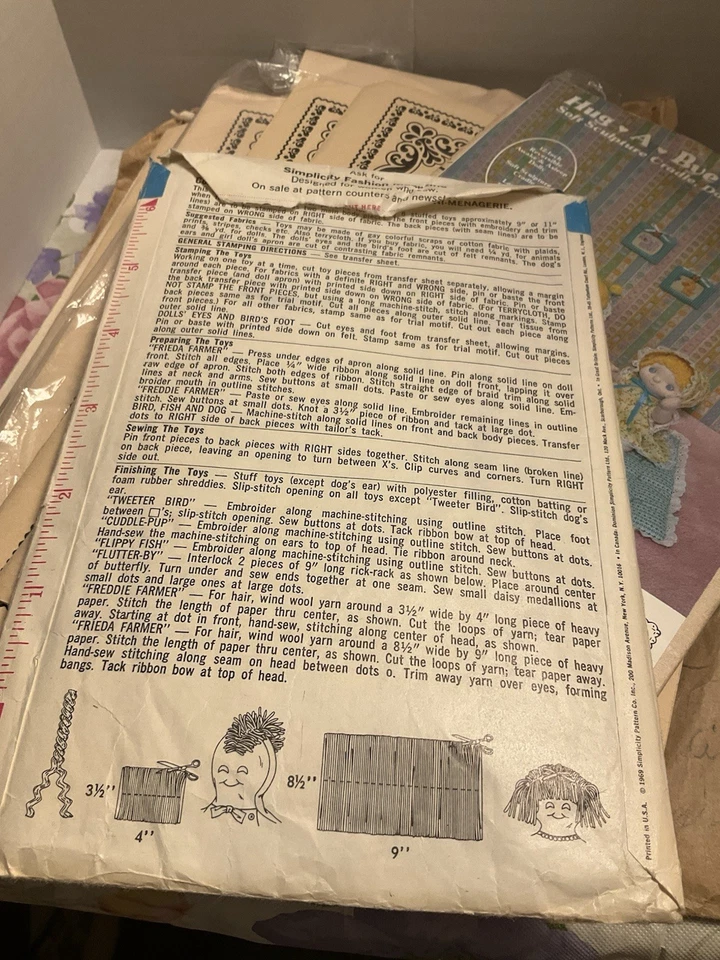 Ask for
Simplicity Fashion
Designed for
On sale at pattern counters and newsst
MENAGERIE.
stuffed toys approximately 9" or 11"
Suggested Fabrics — Toys may be made of gay colorful scraps of cotton fabric with plaids,
prints, stripes, checks etc. Also terrycloth. If you buy fabric, you will need ¼ yd. for animals
and ⅜ yd. for dolls. The dolls' eyes and the bird's foot are cut of felt remnants. The dog's
ears and girl doll's apron are cut of contrasting fabric remnants.
GENERAL STAMPING DIRECTIONS — See transfer sheet.
Stamping The Toys
Working on one toy at a time, cut toy pieces from transfer sheet separately, allowing a margin
around each piece. For fabrics with a definite RIGHT and WRONG side, pin or baste the front
transfer piece (and doll apron) with printed side down on RIGHT side of fabric. Pin or baste
the back transfer piece with printed side down on WRONG side of fabric. (For TERRYCLOTH, DO
NOT STAMP THE FRONT PIECES, but using a long machine-stitch, stitch along markings. Stamp
back pieces same as for trial motif. Cut all pieces along outer solid lines. Tear tissue from
front pieces.) For all other fabrics, stamp same as for trial motif. Cut out each piece along
outer solid line.
DOLLS' EYES AND BIRD'S FOOT — Cut eyes and foot from transfer sheet, allowing margins.
Pin or baste with printed side down on felt. Stamp same as for trial motif. Cut out pieces
along outer solid lines.
Preparing The Toys
"FRIEDA FARMER" — Press under edges of apron along solid line. Pin along solid line on doll
front. Stitch all edges. Place ¼" wide ribbon along solid line on doll front, lapping it over
raw edge of apron. Stitch both edges of ribbon. Stitch straight edge of braid trim along solid
lines at neck and arms. Sew buttons at small dots. Paste or sew eyes along solid line. Em-
broider mouth in outline stitches.
"FREDDIE FARMER" — Paste or sew eyes along solid line. Embroider remaining lines in outline
stitch. Sew buttons at small dots. Knot a 3½" piece of ribbon and tack at large dot.
BIRD, FISH AND DOG — Machine-stitch along solid lines on front and back body pieces. Transfer
dots to RIGHT side of back pieces with tailor's tack.
Sewing The Toys
Pin front pieces to back pieces with RIGHT sides together. Stitch along seam line (broken line)
on back piece, leaving an opening to turn between X's. Clip curves and corners. Turn RIGHT
side out.
Finishing The Toys — Stuff toys (except dog's ear) with polyester filling, cotton batting or
foam rubber shreddies. Slip-stitch opening on all toys except "Tweeter Bird". Slip-stitch dog's
ear.
"TWEETER BIRD" — Embroider along machine-stitching using outline stitch. Place foot
between □'s; slip-stitch opening. Sew buttons at dots. Tack ribbon bow at top of head.
"CUDDLE-PUP" — Embroider along machine-stitching using outline stitch. Sew buttons at dots.
Hand-sew the machine-stitching on ears to top of head. Tie ribbon around neck.
"FLIPPY FISH" — Embroider along machine-stitching using outline stitch. Sew buttons at dots.
"FLUTTER-BY" — Interlock 2 pieces of 9" long rick-rack as shown below. Place around center
of butterfly. Turn under and sew ends together at one seam. Sew small daisy medallions at
small dots and large ones at large dots.
"FREDDIE FARMER" — For hair, wind wool yarn around a 3½" wide by 4" long piece of heavy
paper. Stitch the length of paper thru center, as shown. Cut the loops of yarn; tear paper
away. Starting at dot in front, hand-sew, stitching along center of head, as shown.
"FRIEDA FARMER" — For hair, wind wool yarn around a 8½" wide by 9" long piece of heavy
paper. Stitch the length of paper thru center, as shown. Cut the loops of yarn; tear paper away.
Hand-sew stitching along seam on head between dots o. Trim away yarn over eyes, forming
bangs. Tack ribbon bow at top of head.
3½"
4"
8½"
9"
Printed in U.S.A. © 1969 Simplicity Pattern Co. Inc., 200 Madison Avenue, New York, N.Y. 10016
6
5
4
3
2
1
Hug ♥ A ♥ Bye
Soft Sculpture Cradles